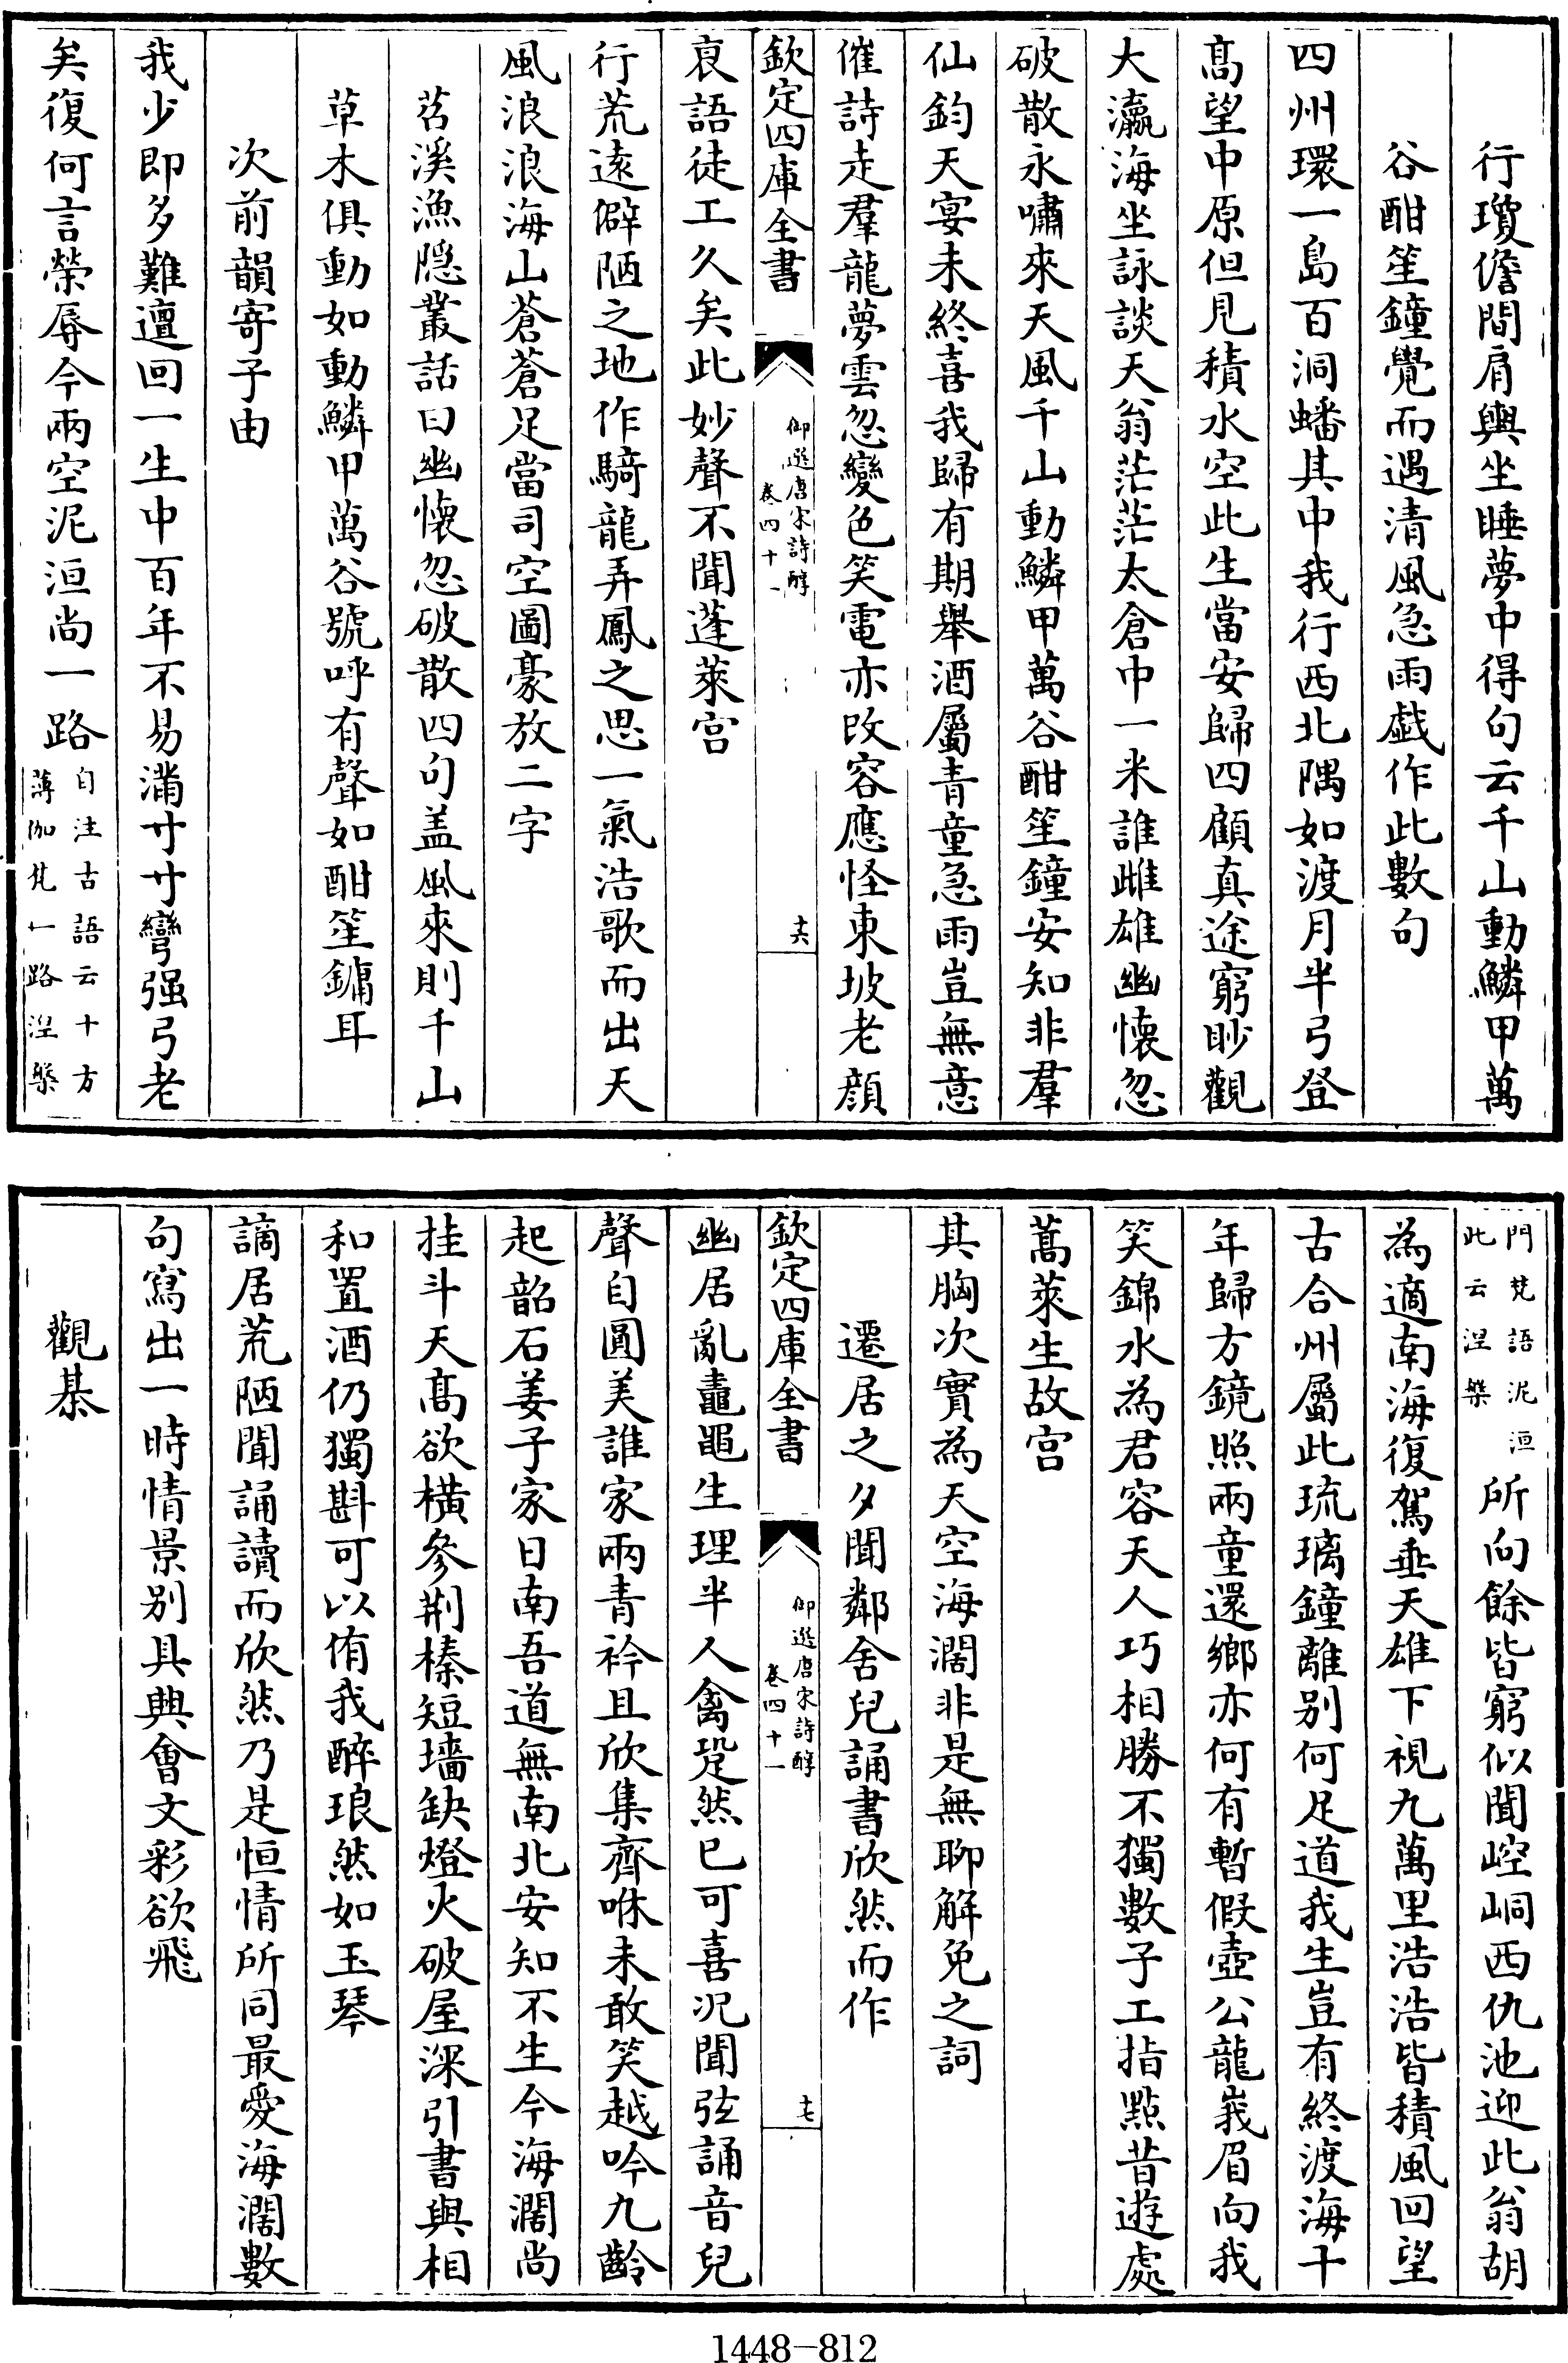 行瓊儋間肩輿坐睡夢中得句云千山動鱗甲萬
谷酣笙鐘覺而遇清風急雨戯作此數句
四州環一島百洞蟠其中我行西北隅如渡月半弓登
髙望中原但見積水空此生當安歸四顧真途窮眇觀
大瀛海坐詠談天翁茫茫太倉中一米誰雌雄幽懷忽
破散永嘯來天風千山動鱗甲萬谷酣笙鐘安知非羣
仙鈞天宴未終喜我歸有期舉酒屬青童急雨豈無意
催詩走羣龍夢雲忽變色笑電亦改容應怪東坡老顔
欽定四庫全書
御選唐宋詩醇
卷四十一
十六
衰語徒工久矣此妙聲不聞蓬萊宫
行荒逺僻陋之地作騎龍弄鳳之思一氣浩歌而出天
風浪浪海山蒼蒼足當司空圖豪放二字
苕溪漁隠叢話曰幽懷忽破散四句盖風來則千山
草木俱動如動鱗甲萬谷號呼有聲如酣笙鏞耳
次前韻寄子由
我少即多難邅回一生中百年不易滿寸寸彎强弓老
矣復何言榮辱今兩空泥洹尚一路
自注古語云十方
薄伽梵一路涅槃
門梵語泥洹
此云涅槃
所向餘皆窮似聞崆峒西仇池迎此翁胡
為適南海復駕垂天雄下視九萬里浩浩皆積風回望
古合州屬此琉璃鐘離别何足道我生豈有終渡海十
年歸方鏡照兩童還鄉亦何有暫假壺公龍峩眉向我
笑錦水為君容天人巧相勝不獨數子工指點昔遊處
蒿萊生故宫
其胸次實為天空海濶非是無聊解免之詞
遷居之夕聞鄰舍兒誦書欣然而作
欽定四庫全書
御選唐宋詩醇
卷四十一
十七
幽居亂鼃黽生理半人禽跫然已可喜况聞弦誦音兒
聲自圓美誰家兩青衿且欣集齊咻未敢笑越吟九齡
起韶石姜子家日南吾道無南北安知不生今海濶尚
挂斗天髙欲橫參荆榛短墻缺燈火破屋深引書與相
和置酒仍獨斟可以侑我醉琅然如玉琴
謫居荒陋聞誦讀而欣然乃是恒情所同最愛海濶數
句寫出一時情景别具興會文彩欲飛
觀棊
1448-812